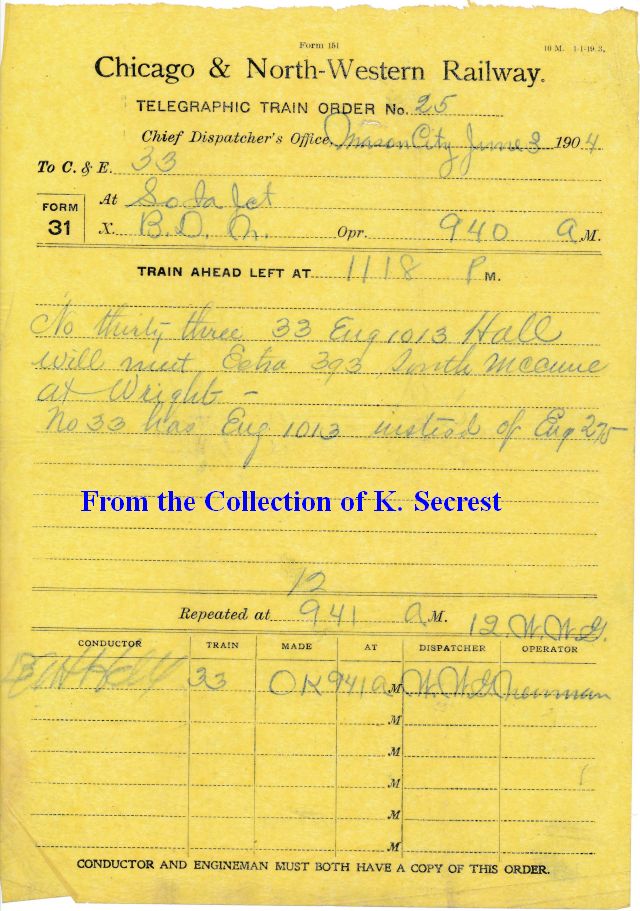 Form 151
10 M. 1-1-19 3.
Chicago & North-Western Railway.
TELEGRAPHIC TRAIN ORDER No. 25
Chief Dispatcher's Office, Mason City June 3 1904
To C. & E. 33
FORM 31
At So Ia Jct
X. B. D. Opr. 940 A M.
TRAIN AHEAD LEFT AT 1118 P M.
No thirty three 33 Eng 1013 Hall
will meet Extra 393 South McCune
at Wright -
No 33 has Eng 1013 instead of Eng 275
From the Collection of K. Secrest
12
Repeated at 941 a M. 12 W.W.G.
CONDUCTOR TRAIN MADE AT DISPATCHER OPERATOR
33 OK 941 a M W.W.G. Newman
M
M
M
M
M
CONDUCTOR AND ENGINEMAN MUST BOTH HAVE A COPY OF THIS ORDER.